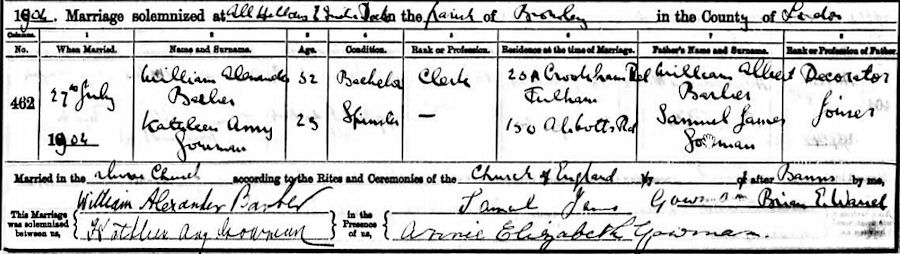 1904. Marriage solemnized at All Hallows E India Docks in the parish of Bromley in the County of London
Columns. 1 2 3 4 5 6 7 8
No. When Married. Name and Surname. Age. Condition. Rank or Profession. Residence at the time of Marriage. Father's Name and Surname. Rank or Profession of Father.
462 27th July 1904 William Alexander Barber 32 Bachelor Clerk 25A Crookham Rd Fulham William Albert Barber Decorator
Kathleen Amy Gowman 23 Spinster — 150 Abbotts Rd Samuel James Gowman Joiner
Married in the Church according to the Rites and Ceremonies of the Church of England by or after Banns by me,
This Marriage was solemnized between us, William Alexander Barber in the Presence of us, Samuel James Gowman Brian E.
Kathleen Amy Gowman Annie Elizabeth Gowman.